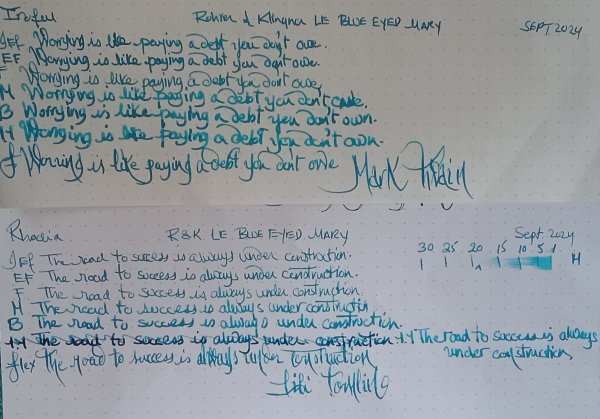 Rohrer & Klingner LE BLUE EYED MARY SEPT. 2024
JEF Worrying is like paying a debt you don't owe.
EF Worrying is like paying a debt you don't owe.
F Worrying is like paying a debt you don't owe,
M Worrying is like paying a debt you don't owe.
B Worrying is like paying a debt you don't own.
M Worrying is like paying a debt you don't own.
f Worring is like paying a debt you don't owe
Mark Twain
Rhodia R&K LE BLUE EYED MARY Sept. 2024
30 25 20 15 10 5 1 M
JEF The road to success is always under constraction.
EF The road to success is always under construction.
F The road to success is always under construction.
M The road to success is always under construction
B The road to success is always under construction.
The road to success is always under construction
The road to success is always under construction,
flex the road to success is always under construction
Lili Tomling